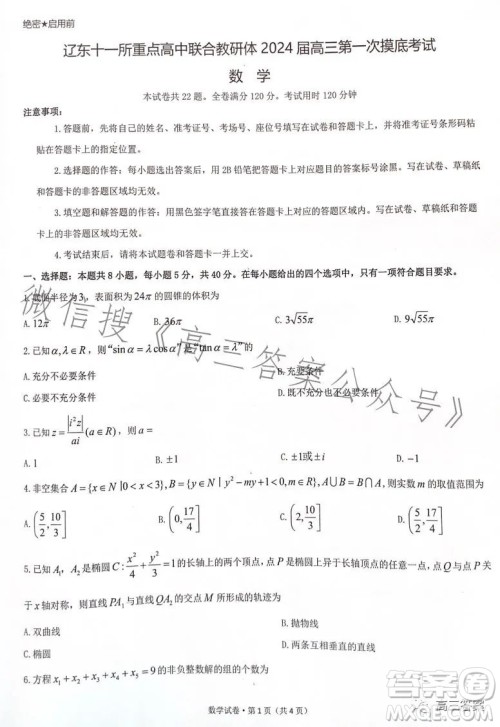 绝密★启用前
辽东十一所重点高中联合教研体 2024 届高三第一次摸底考试
数 学
本试卷共 22 题。全卷满分 120 分。考试用时 120 分钟
注意事项：
1.答题前，先将自己的姓名、准考证号、考场号、座位号填写在试卷和答题卡上，并将准考证号条形码粘
贴在答题卡上的指定位置。
2.选择题的作答：每小题选出答案后，用 2B 铅笔把答题卡上对应题目的答案标号涂黑。写在试卷、草稿纸
和答题卡的非答题区域均无效。
3.填空题和解答题的作答：用黑色签字笔直接答在答题卡上对应的答题区域内。写在试卷、草稿纸和答题卡
的非答题区域均无效。
4.考试结束后，请将本试题卷和答题卡一并上交。
一、选择题：本题共 8 小题，每小题 5 分，共 40 分。在每小题给出的四个选项中，只有一项符合题目要求。
1.底面半径为 3，表面积为 24π 的圆锥的体积为
A.12π B.36π C.3√55π D.9√55π
2.已知 α,λ∈R，则“sinα=λcosα”是“tanα=λ”的
A.充分不必要条件 B.必要不充分条件
C.充要条件 D.既不充分也不必要条件
3.已知 z=|i²z|/ai (a∈R)，则 a=
A.1 B.±1 C.±1或±i D.±i
4.非空集合 A={x∈N|0<x<3}，B={y∈N|y²−my+1<0,m∈R}，A∪B=B∩A，则实数 m 的取值范围为
A.(5/2,10/3] B.(0,17/4] C.(2,10/3] D.(5/2,17/4]
5.已知 A₁，A₂ 是椭圆 C:x²/4+y²/3=1 的长轴上的两点，点 P 是椭圆上异于长轴顶点的任意一点，点 Q 与点 P 关
于 x 轴对称，则直线 PA₁ 与直线 QA₂ 的交点所形成的轨迹为
A.双曲线 B.抛物线
C.椭圆 D.两条互相垂直的直线
6.方程 x₁+x₂+x₃+x₄+x₅=9 的非负整数解的组的个数为
数学试卷·第 1 页（共 4 页）
微信搜《高三答案公众号》
高三答案